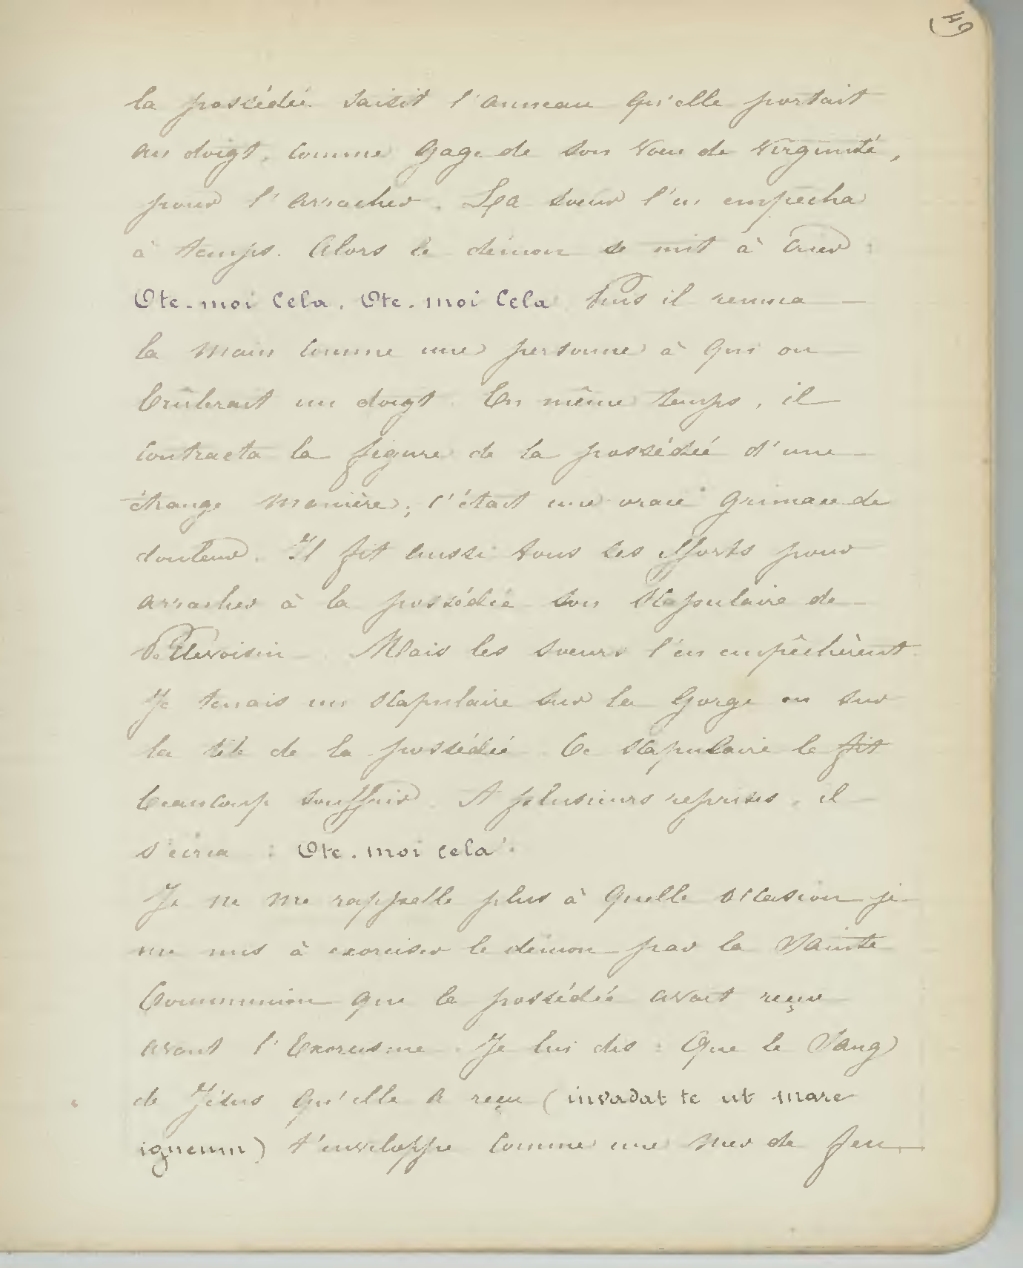 49
la possédée saisit l'anneau qu'elle portait
au doigt, comme gage de son vœu de virginité,
pour l'arracher. La sœur l'en empêcha
à temps. Alors le démon se mit à crier :
Ote-moi cela, Ote-moi cela. Puis il remua
la main comme une personne à qui on
brûlerait un doigt. En même temps, il
contracta la figure de la possédée d'une
étrange manière, c'était une vraie grimace de
douleur. Il fit aussi tous ses efforts pour
arracher à la possédée son scapulaire de
Pellevoisin. Mais les sœurs l'en empêchèrent.
Je tenais un scapulaire sur la gorge ou sur
la tête de la possédée. Ce scapulaire le fit
beaucoup souffrir. A plusieurs reprises, il
s'écria : Ote-moi cela.
Je ne me rappelle plus à quelle occasion je
me mis à exorciser le démon par la Sainte
Communion que la possédée avait reçue
avant l'Exorcisme. Je lui dis : Que le Sang
de Jésus qu'elle a reçu (invadat te ut mare
igneum) t'enveloppe comme une mer de feu.